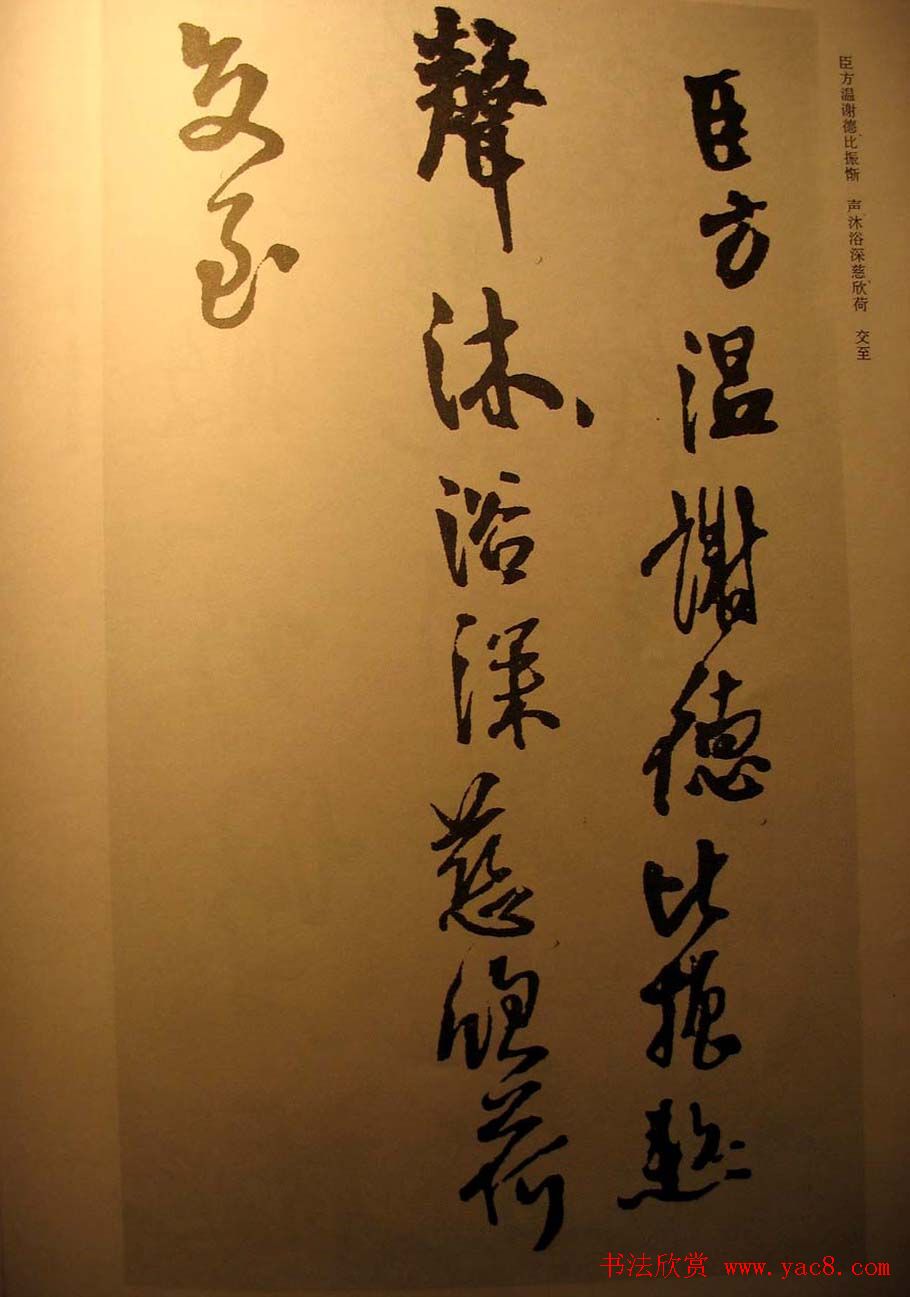 臣方温谢德、比振惭 声、沐浴深慈、欣荷 交至
臣方温謝德比振慙
聲沐浴深慈欣荷
交至
书法欣赏 www.yac8.com